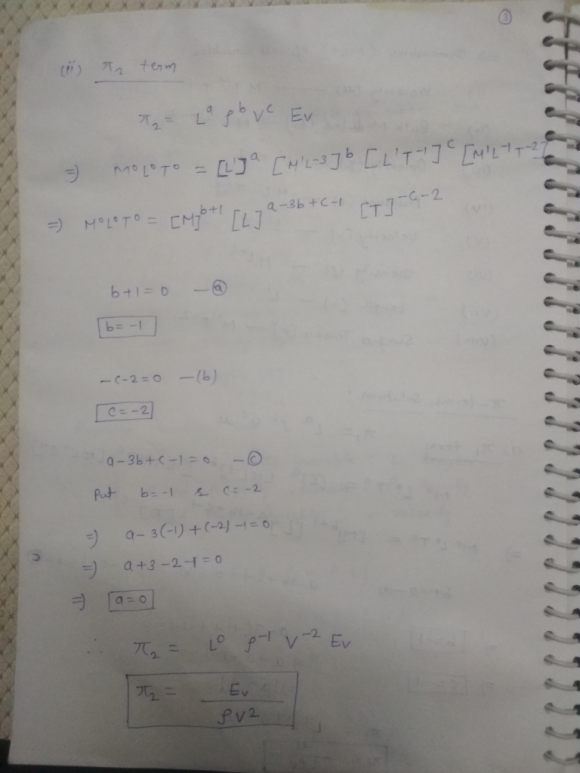 ③
(ii) π₂ term
π₂ = Lᵃ ρᵇ Vᶜ Ev
⇒) M⁰L⁰T⁰ = [L¹]ᵃ [M¹L⁻³]ᵇ [L¹T⁻¹]ᶜ [M¹L⁻¹T⁻²]
⇒) M⁰L⁰T⁰ = [M]ᵇ⁺¹ [L]ᵃ⁻³ᵇ⁺ᶜ⁻¹ [T]⁻ᶜ⁻²
b+1=0 —ⓐ
b=-1
-c-2=0 —(b)
c=-2
a-3b+c-1=0 —ⓒ
Put b=-1 & c=-2
⇒) a-3(-1)+(-2)-1=0
⇒) a+3-2-1=0
⇒) a=0
∴ π₂ = L⁰ ρ⁻¹ V⁻² Ev
π₂ = Ev / ρV²